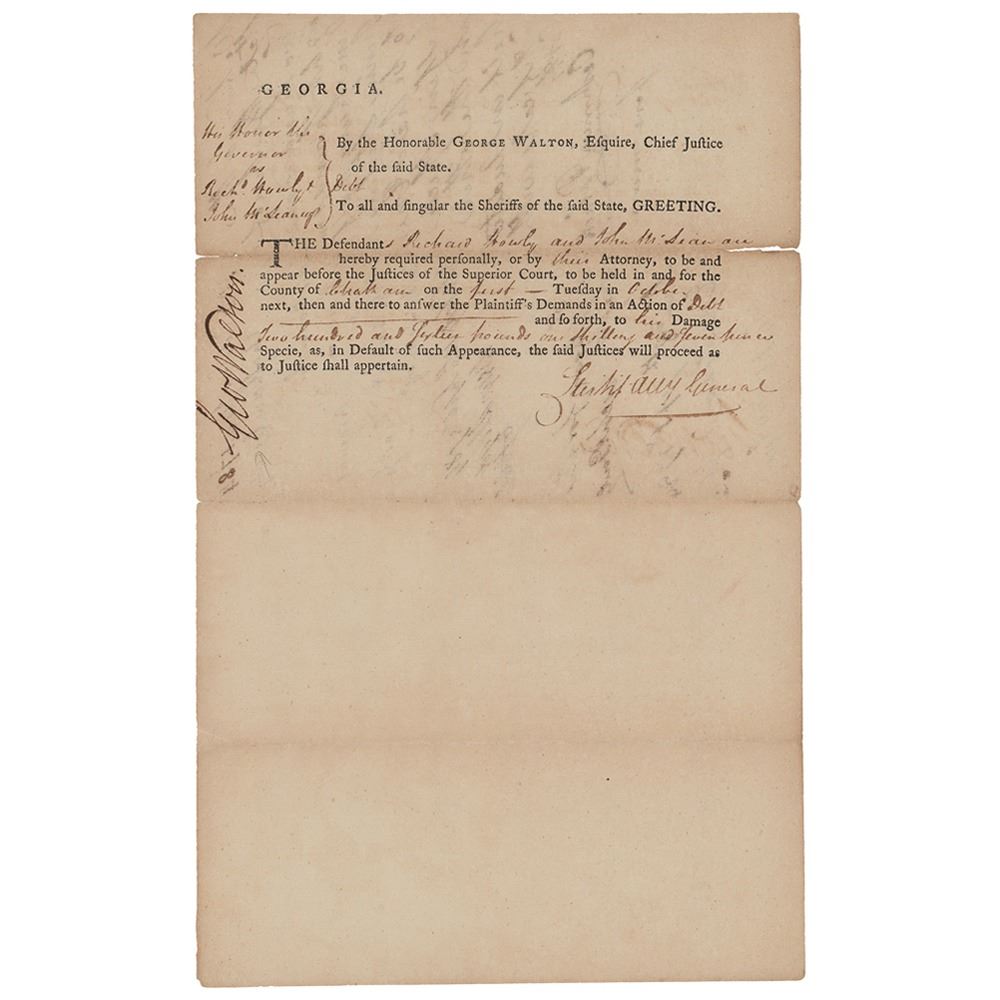 GEORGIA.
His Honor the
Governor
vs
Rich.d Howly &
John McLean
By the Honorable GEORGE WALTON, Eſquire, Chief Juſtice
of the ſaid State.
Debt
To all and ſingular the Sheriffs of the ſaid State, GREETING.
THE Defendants Richard Howly and John McLean are
hereby required perſonally, or by their Attorney, to be and
appear before the Juſtices of the Superior Court, to be held in and for the
County of Chatham on the first — Tueſday in October
next, then and there to anſwer the Plaintiff's Demands in an Action of Debt
and ſo forth, to his Damage
Two hundred and Sixteen pounds one Shilling and Seven pence
Specie, as, in Default of ſuch Appearance, the ſaid Juſtices will proceed as
to Juſtice ſhall appertain.
Att.y General
Geo Walton.